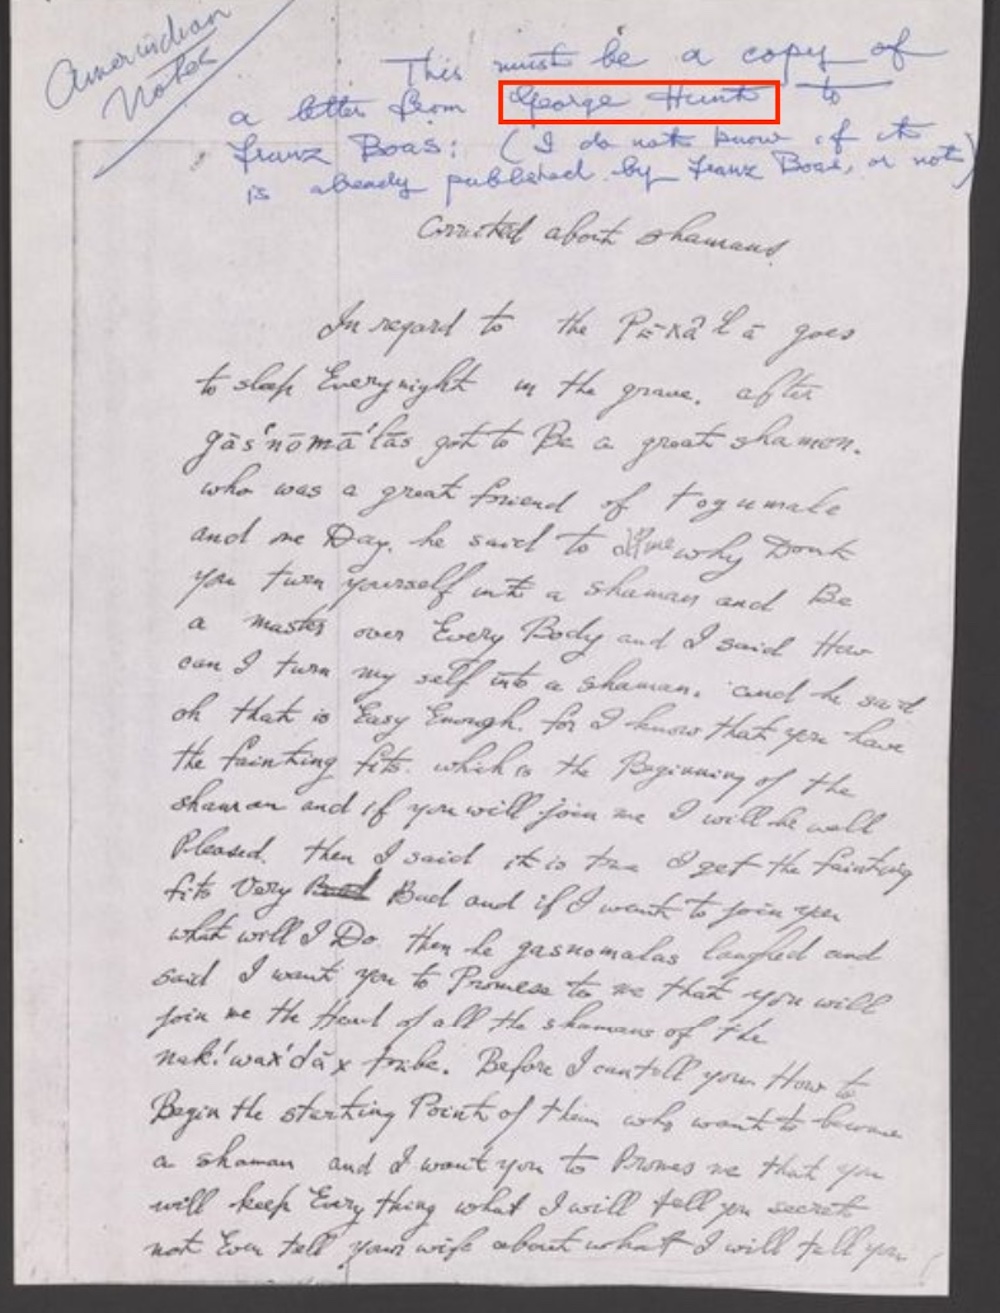 Amerindian
Notes
This must be a copy of
a letter from George Hunt to
Franz Boas: (I do not know if it
is already published by Franz Boas, or not)
Corrected about shamans.
In regard to the goes
to sleep Every night in the grave. after
gās'nōmā'las got to Be a great shamon.
who was a great friend of Fogumale
and one Day. he said to me why Dont
you turn yourself into a shaman and Be
a master over Every Body and I said How
can I turn my self into a shaman. and he said
oh that is Easy Enough. for I know that you have
the fainting fits. which is the Beginning of the
shaman and if you will join me I will be well
Pleased. then I said it is true I get the fainting
fits Very Bad and if I want to join you
what will I Do. then he gasnomalas laughed and
said I want you to Promese to me that you will
join me the Head of all the shamans of the
nak!wax'dāx tribe. Before I can tell you How to
Begin the starting Point of them who want to become
a shaman and I want you to Promes me that you
will keep Every thing what I will tell you secret
not Even tell your wife about what I will tell you